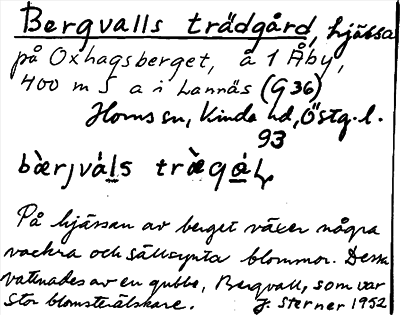 Bergvalls trädgård, hjässa
på Oxhagsberget, å 1 Åby,
400 m S a i Lannäs (G 36)
Horns sn, Kinda hd, Östg. l.
93
bàrjvál̲s tràgá̲ɽ
På hjässan av berget växer några
vackra och sällsynta blommor. Dessa
vattnades av en gubbe, Bergvall, som var
stor blomsterälskare. J. Sterner 1952